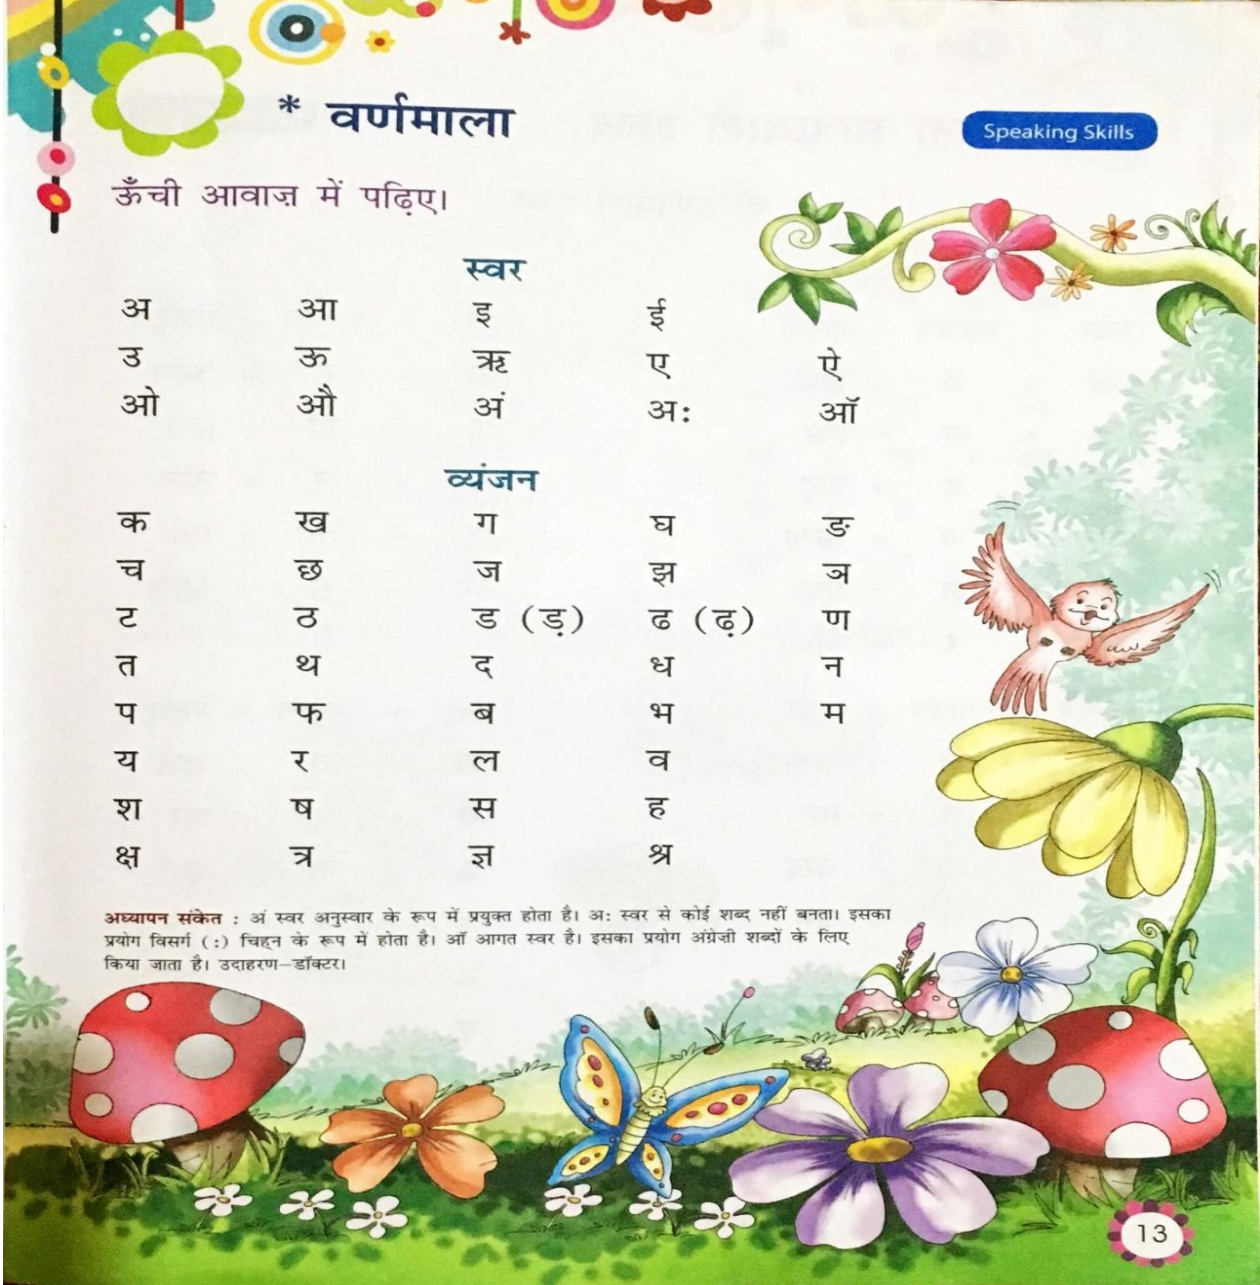 * वर्णमाला
Speaking Skills
ऊँची आवाज़ में पढ़िए।
स्वर
अ आ इ ई
उ ऊ ऋ ए ऐ
ओ औ अं अः ऑ
व्यंजन
क ख ग घ ङ
च छ ज झ ञ
ट ठ ड (ड़) ढ (ढ़) ण
त थ द ध न
प फ ब भ म
य र ल व
श ष स ह
क्ष त्र ज्ञ श्र
अध्यापन संकेत : अं स्वर अनुस्वार के रूप में प्रयुक्त होता है। अः स्वर से कोई शब्द नहीं बनता। इसका
प्रयोग विसर्ग (:) चिह्न के रूप में होता है। ऑ आगत स्वर है। इसका प्रयोग अंग्रेज़ी शब्दों के लिए
किया जाता है। उदाहरण–डॉक्टर।
13